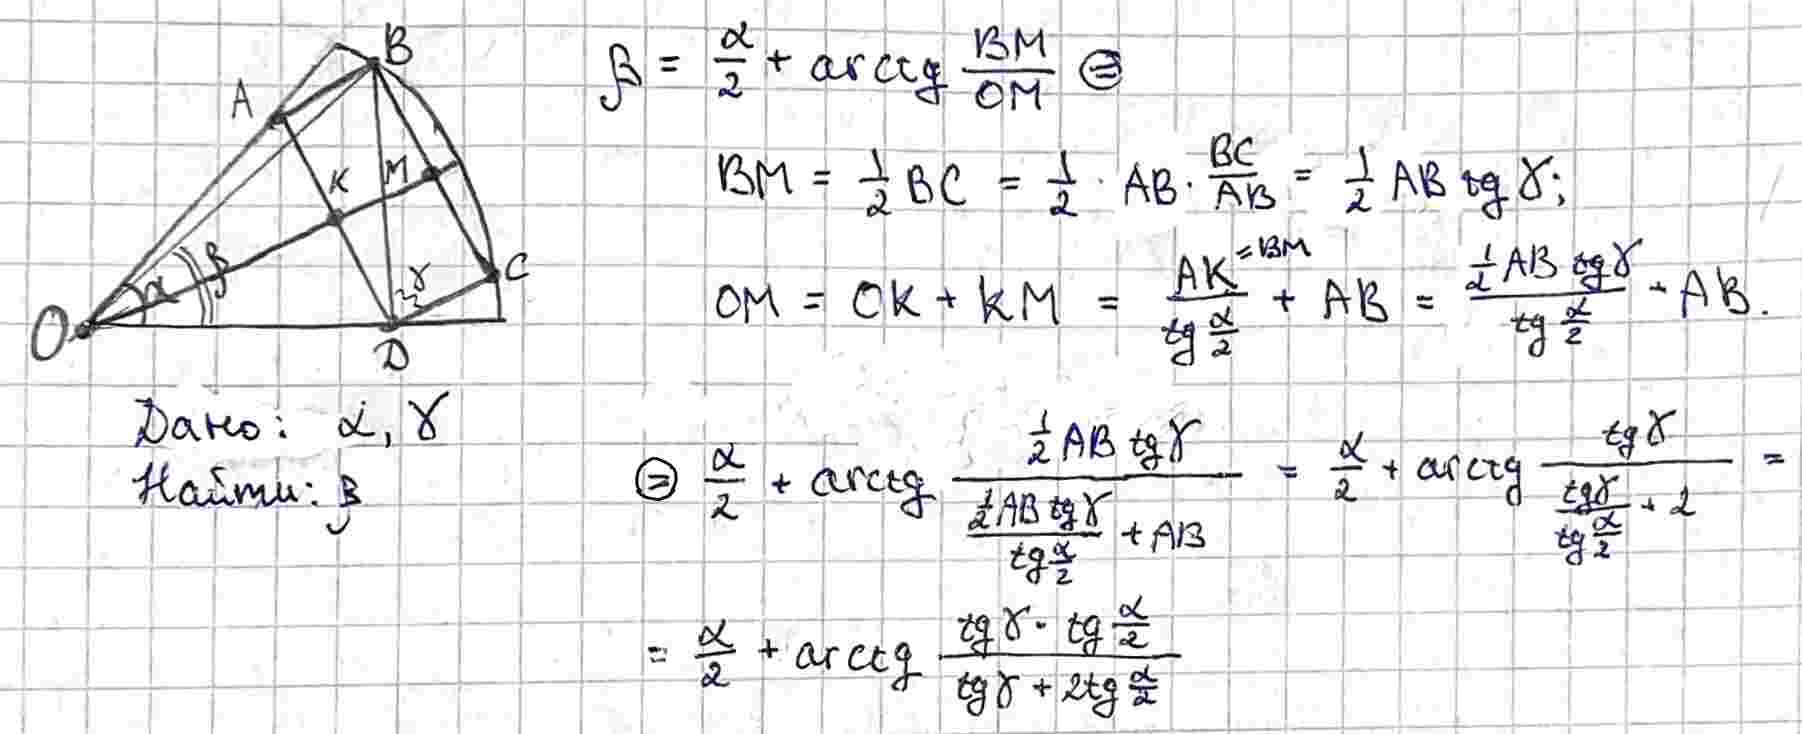 B
A
K
M
C
α
β
γ
O
D
Дано: α, γ
Найти: β
β = α/2 + arctg BM/OM ⊜
BM = 1/2 BC = 1/2 · AB · BC/AB = 1/2 AB tg γ;
OM = OK + KM = AK^{=BM}/tg α/2 + AB = (1/2 AB tg γ)/(tg α/2) + AB.
⊜ α/2 + arctg (1/2 AB tg γ)/((1/2 AB tg γ)/(tg α/2) + AB) = α/2 + arctg (tg γ)/((tg γ)/(tg α/2) + 2) =
= α/2 + arctg (tg γ · tg α/2)/(tg γ + 2tg α/2)